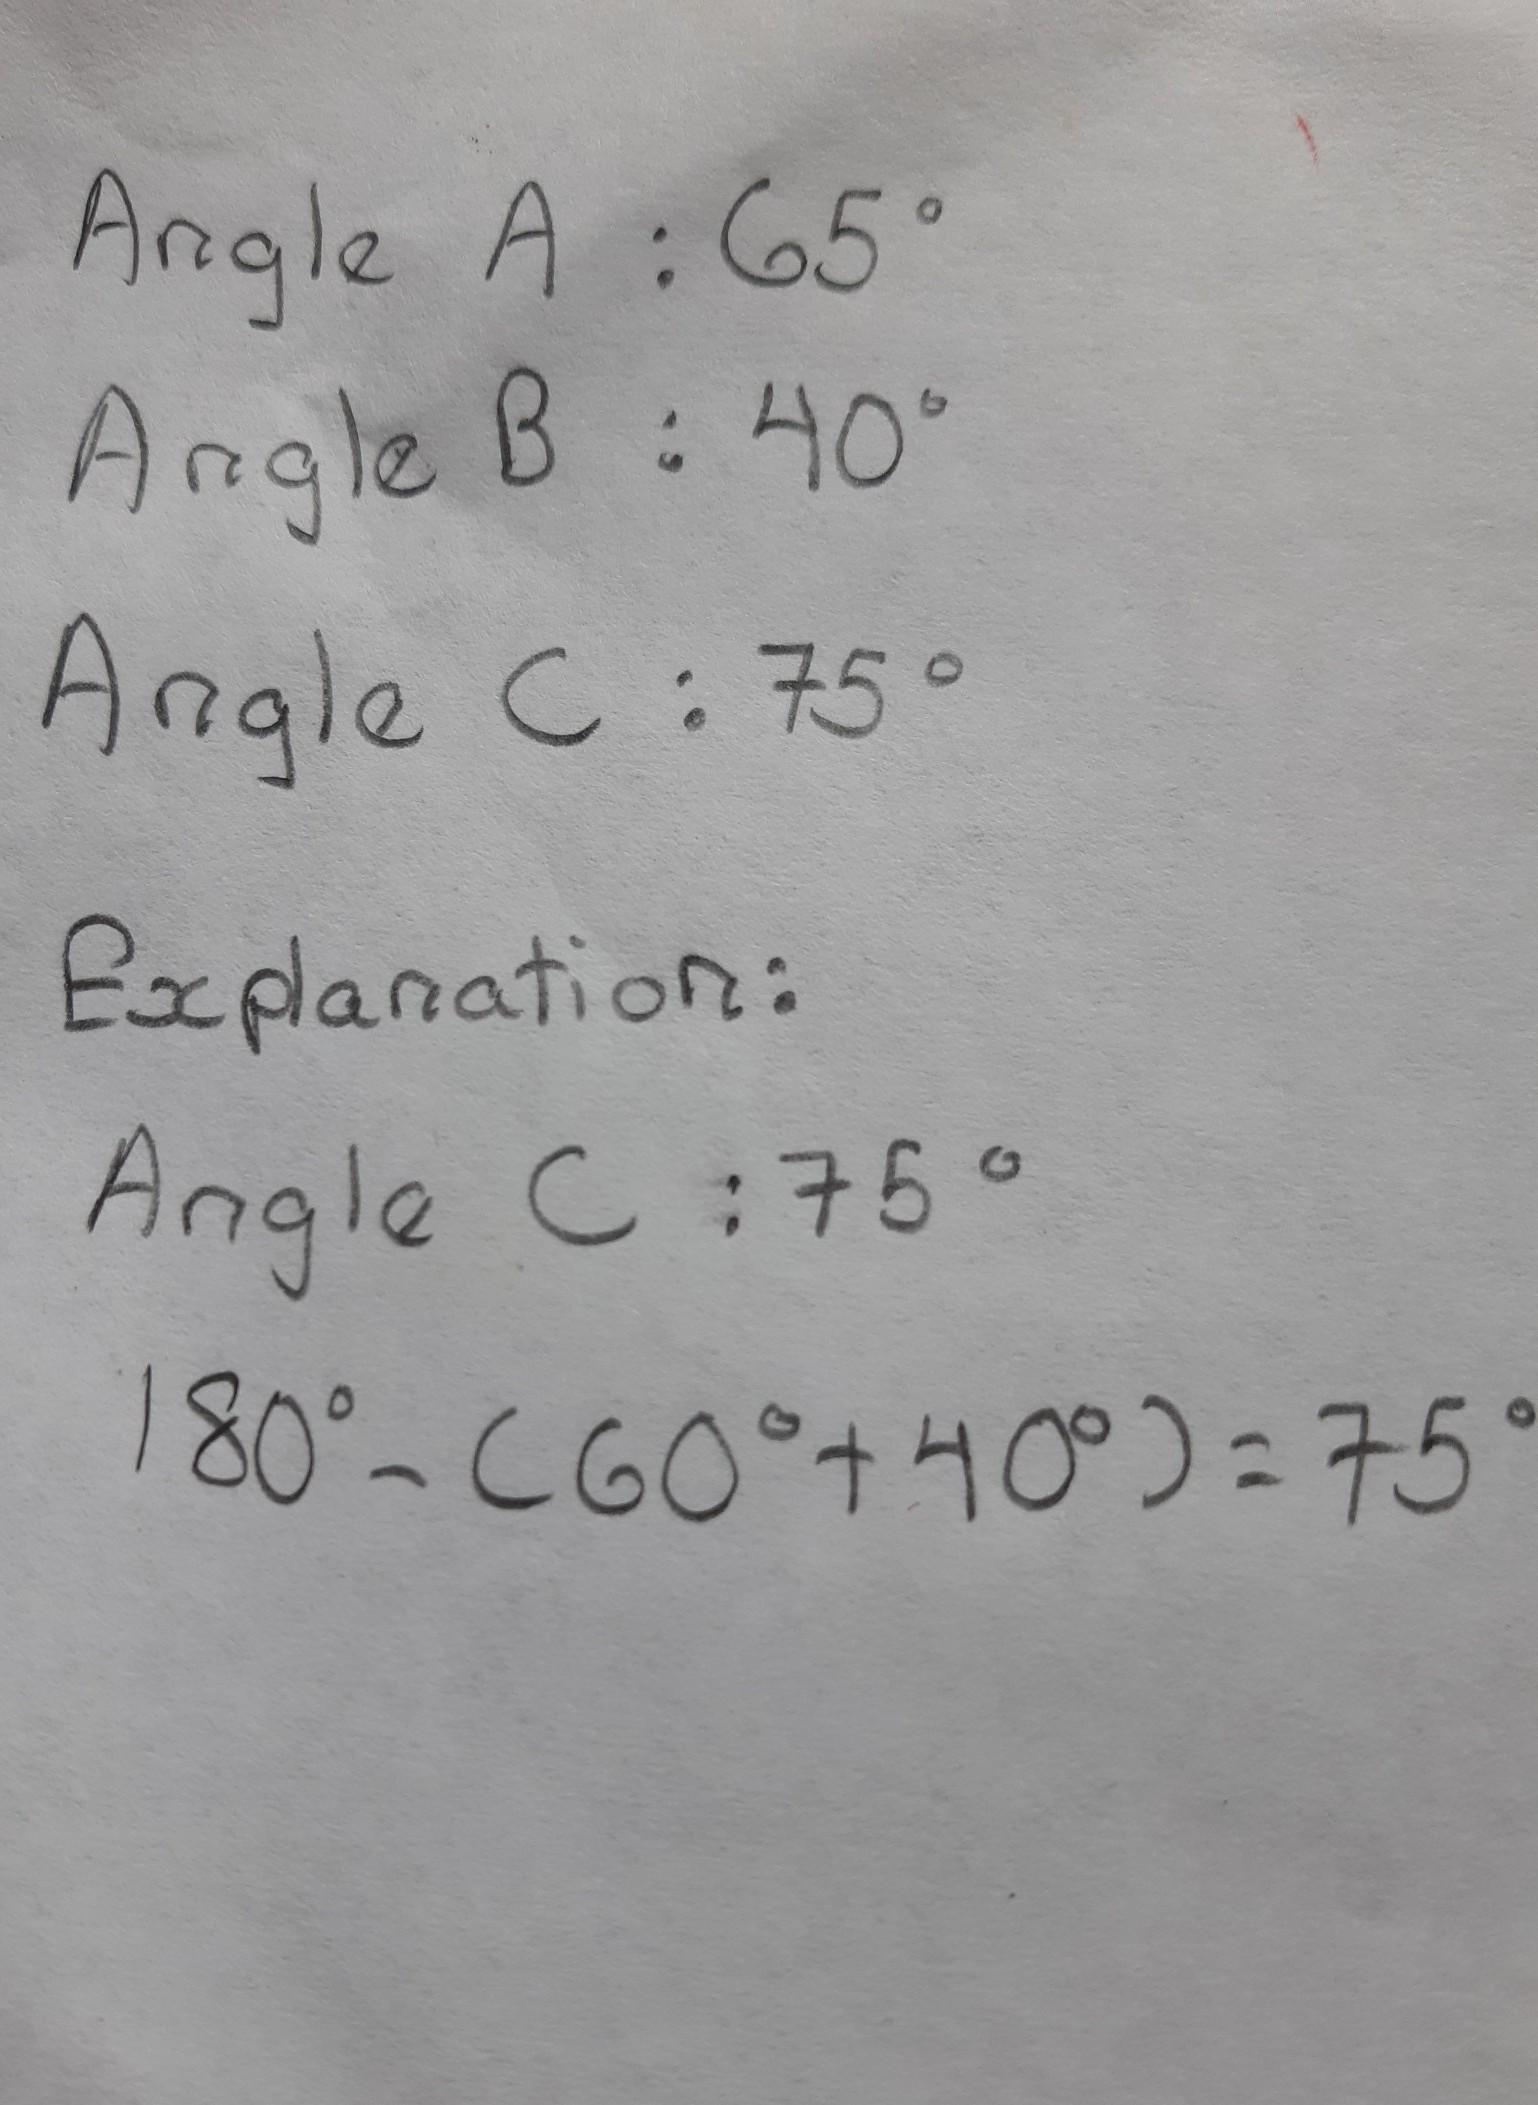 Angle A : 65°
Angle B : 40°
Angle C : 75°
Explanation:
Angle C : 75°
180° - (60° + 40°) = 75°